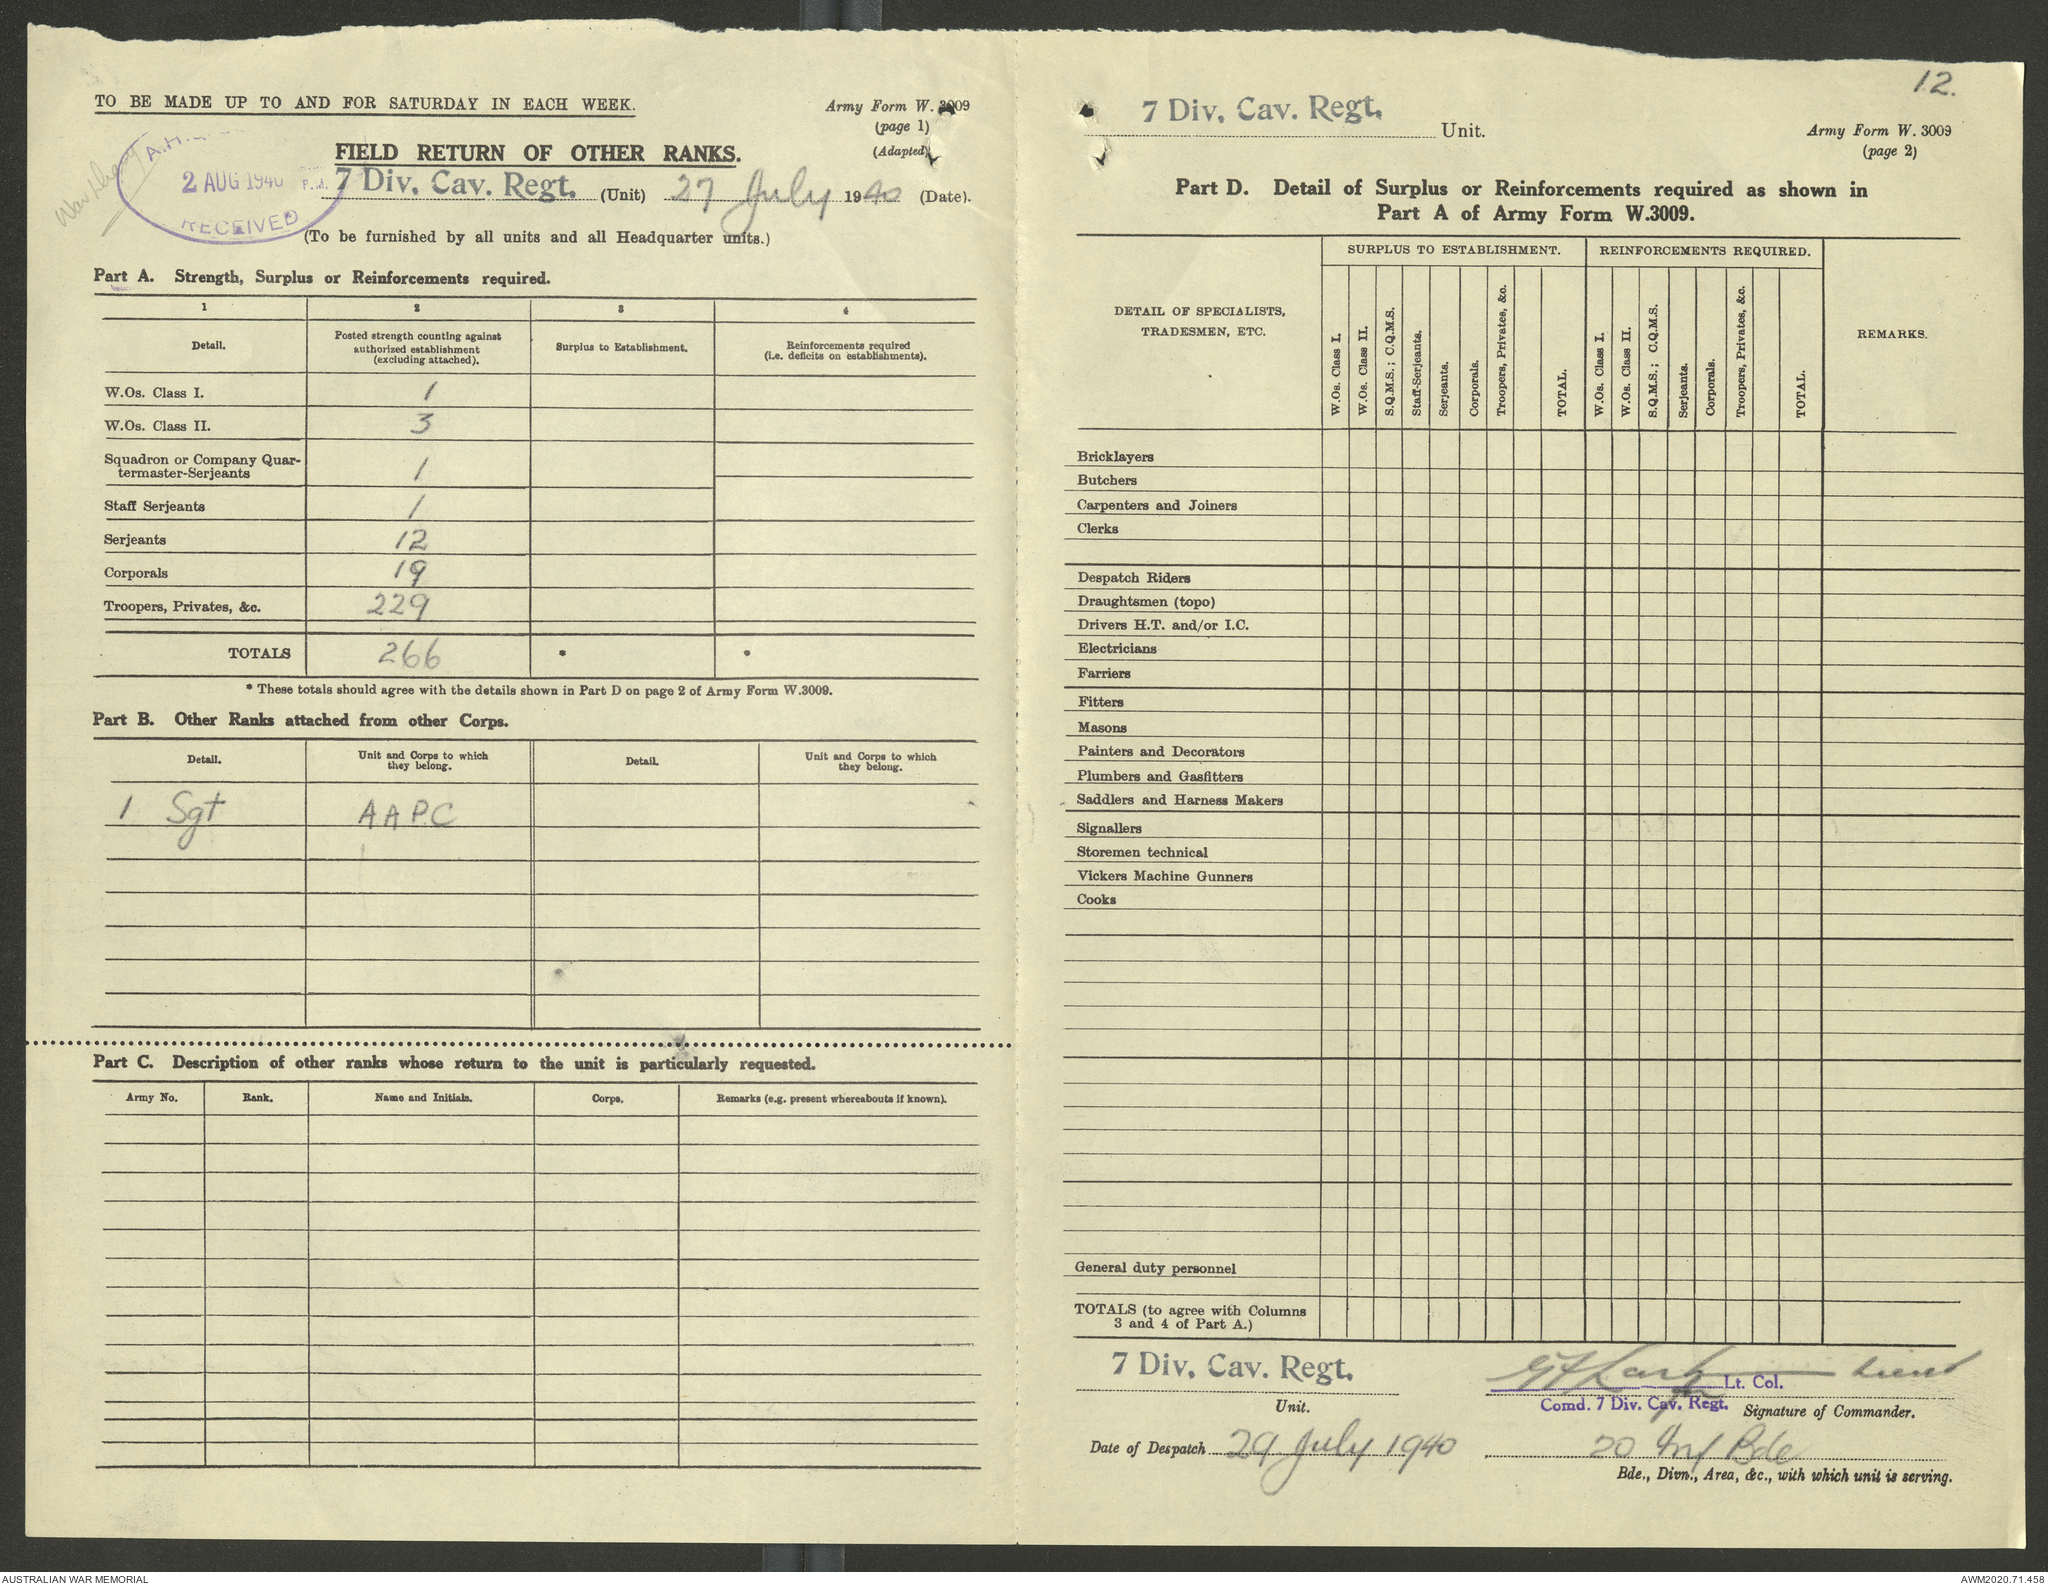 12.
TO BE MADE UP TO AND FOR SATURDAY IN EACH WEEK.
Army Form W. 3009
(page 1)
(Adapted)
A.H.
2 AUG 1940
P.M.
RECEIVED
War Diary
FIELD RETURN OF OTHER RANKS.
7 Div. Cav. Regt. (Unit) 27 July 1940 (Date).
(To be furnished by all units and all Headquarter units.)
Part A. Strength, Surplus or Reinforcements required.
1 2 3 4
Detail. Posted strength counting against authorized establishment (excluding attached). Surplus to Establishment. Reinforcements required (i.e. deficits on establishments).
W.Os. Class I. 1
W.Os. Class II. 3
Squadron or Company Quar-
termaster-Serjeants 1
Staff Serjeants 1
Serjeants 12
Corporals 19
Troopers, Privates, &c. 229
TOTALS 266 * *
* These totals should agree with the details shown in Part D on page 2 of Army Form W.3009.
Part B. Other Ranks attached from other Corps.
Detail. Unit and Corps to which they belong. Detail. Unit and Corps to which they belong.
1 Sgt A A P.C
Part C. Description of other ranks whose return to the unit is particularly requested.
Army No. Rank. Name and Initials. Corps. Remarks (e.g. present whereabouts if known).
7 Div. Cav. Regt. Unit.
Army Form W. 3009
(page 2)
Part D. Detail of Surplus or Reinforcements required as shown in
Part A of Army Form W.3009.
DETAIL OF SPECIALISTS, TRADESMEN, ETC.
SURPLUS TO ESTABLISHMENT. REINFORCEMENTS REQUIRED.
REMARKS.
W.Os. Class I.
W.Os. Class II.
S.Q.M.S.; C.Q.M.S.
Staff-Serjeants.
Serjeants.
Corporals.
Troopers, Privates, &c.
TOTAL.
W.Os. Class I.
W.Os. Class II.
S.Q.M.S.; C.Q.M.S.
Serjeants.
Corporals.
Troopers, Privates, &c.
TOTAL.
Bricklayers
Butchers
Carpenters and Joiners
Clerks
Despatch Riders
Draughtsmen (topo)
Drivers H.T. and/or I.C.
Electricians
Farriers
Fitters
Masons
Painters and Decorators
Plumbers and Gasfitters
Saddlers and Harness Makers
Signallers
Storemen technical
Vickers Machine Gunners
Cooks
General duty personnel
TOTALS (to agree with Columns
3 and 4 of Part A.)
7 Div. Cav. Regt.
Unit.
Lieut
for Lt. Col.
Comd. 7 Div. Cav. Regt. Signature of Commander.
Date of Despatch 29 July 1940
20 Inf Bde
Bde., Divn., Area, &c., with which unit is serving.
AUSTRALIAN WAR MEMORIAL
AWM2020.71.458